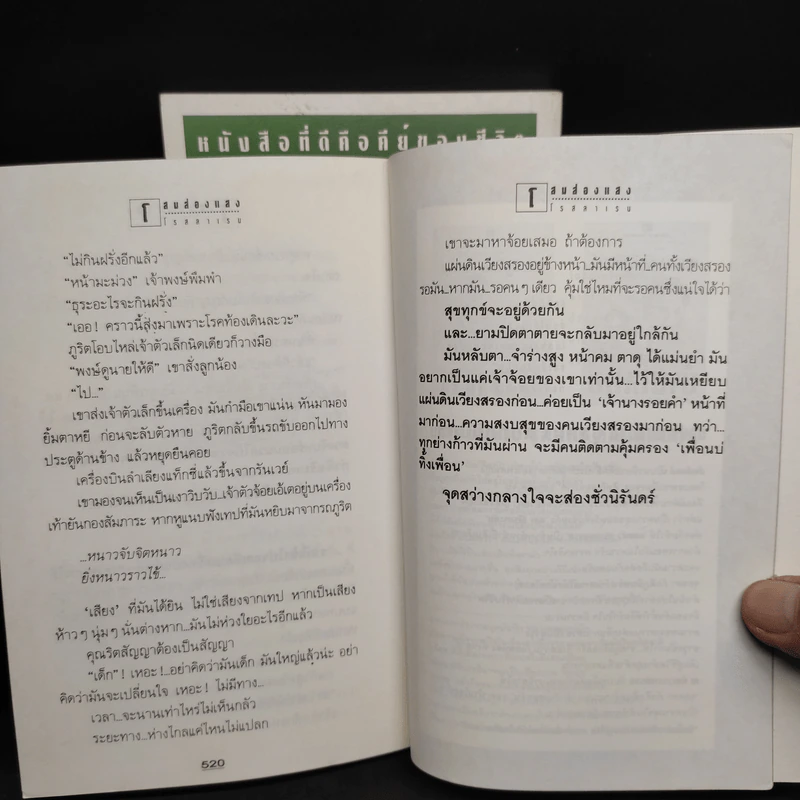 หนังสือที่ดีคือคีย์ของชีวิต
โ สนส่องแสง
โรสลาเรน
“ไม่กินฝรั่งอีกแล้ว”
“หน้ามะม่วง” เจ้าพงษ์พึมพำ
“ธุระอะไรจะกินฝรั่ง”
“เออ! คราวนี้สูงมาเพราะโรคท้องเดินละวะ”
ภูริตโอบไหล่เจ้าตัวเล็กนิดเดียวก็วางมือ
“พงษ์ดูนายให้ดี” เขาสั่งลูกน้อง
“ไป...”
เขาส่งเจ้าตัวเล็กขึ้นเครื่อง มันกำมือเขาแน่น หันมามอง
ยิ้มตาหยี ก่อนจะลับตัวหาย ภูริตกลับขึ้นรถขับออกไปทาง
ประตูด้านข้าง แล้วหยุดยืนคอย
เครื่องบินลำเลียงแท็กซี่แล้วขึ้นจากรันเวย์
เขามองจนเห็นเป็นเงาวิบวับ...เจ้าตัวจ้อยเอ้เตอยู่บนเครื่อง
เท้ายันกองสัมภาระ หากหูแนบฟังเทปที่มันหยิบมาจากรถภูริต
...หนาวจับจิตหนาว
ยิ่งหนาวราวไข้...
‘เสียง’ ที่มันได้ยิน ไม่ใช่เสียงจากเทป หากเป็นเสียง
ห้าวๆ นุ่มๆ นั่นต่างหาก...มันไม่ห่วงใยอะไรอีกแล้ว
คุณริตสัญญาต้องเป็นสัญญา
“เด็ก”! เหอะ!...อย่าคิดว่ามันเด็ก มันใหญ่แล้วน่ะ อย่า
คิดว่ามันจะเปลี่ยนใจ เหอะ! ไม่มีทาง...
เวลา...จะนานเท่าไหร่ไม่เห็นกลัว
ระยะทาง...ห่างไกลแค่ไหนไม่แปลก
520
โ สนส่องแสง
โรสลาเรน
เขาจะมาหาจ้อยเสมอ ถ้าต้องการ
แผ่นดินเวียงสรองอยู่ข้างหน้า...มันมีหน้าที่...คนทั้งเวียงสรอง
รอมัน...หากมัน...รอคนๆ เดียว คุ้มใช่ไหมที่จะรอคนซึ่งแน่ใจได้ว่า
สุขทุกข์จะอยู่ด้วยกัน
และ...ยามปิดตาตายจะกลับมาอยู่ใกล้กัน
มันหลับตา...จำร่างสูง หน้าคม ตาดุ ได้แม่นยำ มัน
อยากเป็นแค่เจ้าจ้อยของเขาเท่านั้น...ไว้ให้มันเหยียบ
แผ่นดินเวียงสรองก่อน...ค่อยเป็น ‘เจ้านางรอยคำ’ หน้าที่
มาก่อน...ความสงบสุขของคนเวียงสรองมาก่อน ทว่า...
ทุกย่างก้าวที่มันผ่าน จะมีคนติดตามคุ้มครอง ‘เพื่อนบ่
ทิ้งเพื่อน’
จุดสว่างกลางใจจะส่องชั่วนิรันดร์